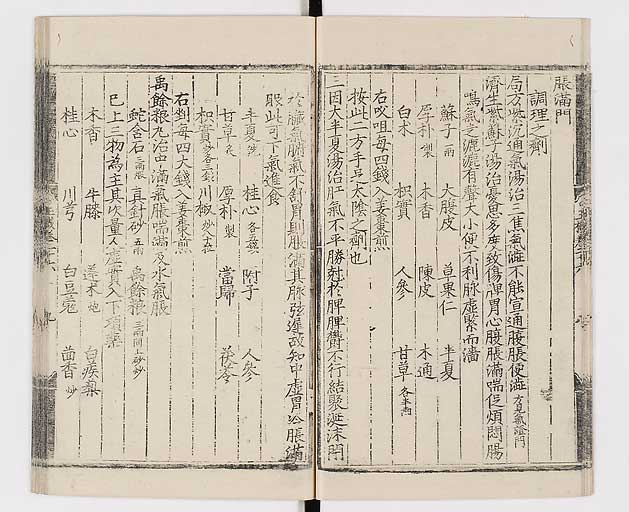 脹滿門
調理之劑
局方㪚沉通氣湯治三焦氣澁不能宣通腹脹便澁方見氣證門
濟生紫蘇子湯治憂思多度致傷脾胃心腹脹滿喘促煩悶腸
鳴氣走漉漉有聲大小便不利脉虛緊而濇
蘇子一兩 大腹皮 草果仁 半夏
厚朴製 木香 陳皮 木通
白朮 枳實 人參 甘草各半兩
右㕮咀每四錢入姜棗煎
按此二方手足太陰之劑也
三因大半夏湯治肝氣不平勝尅於脾脾欝不行結聚涎沫閉
於臟氣腑氣不舒胃則脹滿其脉弦遲故知中虛胃冷脹滿
眼此可下氣進食
半夏洗 桂心各五錢 附子 人參
甘草炙 厚朴製 當歸 茯苓
枳實炒各三錢 川椒炒去
右剉每四大錢入姜棗煎
禹餘粮丸治中滿氣脹喘滿及水氣脹
蛇含石 真針砂五兩 禹餘粮三兩同上砂炒
已上三物為主其次量人虛實入下項藥
木香 牛膝 蓬朮炮 白蒺䔧
桂心 川芎 白豆蔲 茴香炒